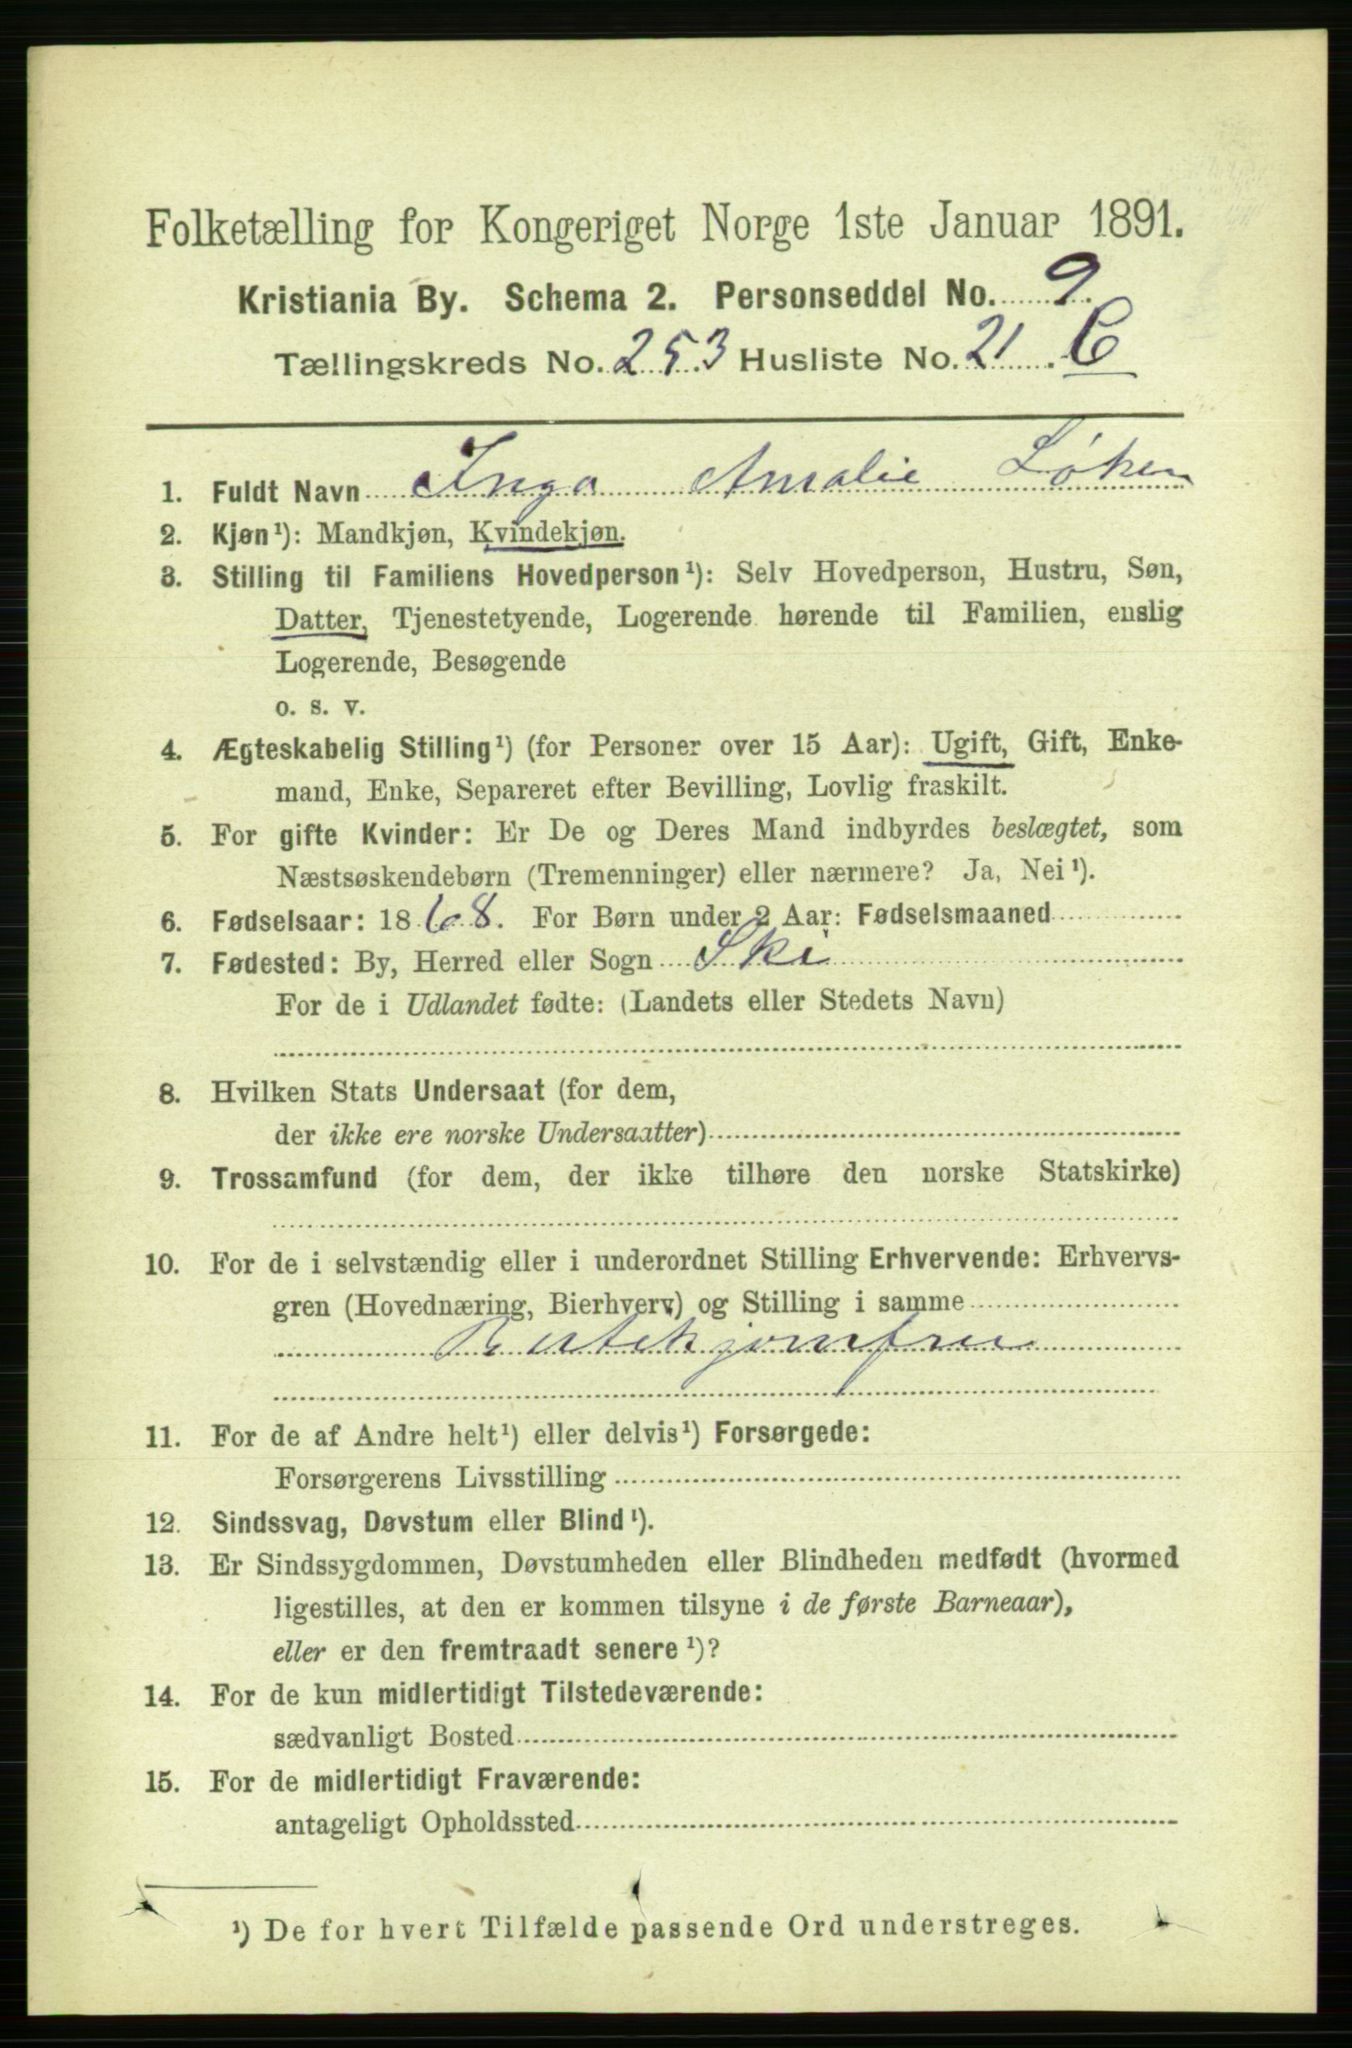 Folketælling for Kongeriget Norge 1ste Januar 1891.
Kristiania By. Schema 2. Personseddel No. 9.
Tællingskreds No. 253 Husliste No. 21. C
1. Fuldt Navn Inga Amalie Løken
2. Kjøn¹): Mandkjøn, Kvindekjøn.
3. Stilling til Familiens Hovedperson¹): Selv Hovedperson, Hustru, Søn,
Datter, Tjenestetyende, Logerende hørende til Familien, enslig
Logerende, Besøgende
o. s. v.
4. Ægteskabelig Stilling¹) (for Personer over 15 Aar): Ugift, Gift, Enke-
mand, Enke, Separeret efter Bevilling, Lovlig fraskilt.
5. For gifte Kvinder: Er De og Deres Mand indbyrdes beslægtet, som
Næstsøskendebørn (Tremenninger) eller nærmere? Ja, Nei¹).
6. Fødselsaar: 1868. For Børn under 2 Aar: Fødselsmaaned
7. Fødested: By, Herred eller Sogn Ski
For de i Udlandet fødte: (Landets eller Stedets Navn)
8. Hvilken Stats Undersaat (for dem,
der ikke ere norske Undersaatter)
9. Trossamfund (for dem, der ikke tilhøre den norske Statskirke)
10. For de i selvstændig eller i underordnet Stilling Erhvervende: Erhvervs-
gren (Hovednæring, Bierhverv) og Stilling i samme
Butikjomfru
11. For de af Andre helt¹) eller delvis¹) Forsørgede:
Forsørgerens Livsstilling
12. Sindssvag, Døvstum eller Blind¹).
13. Er Sindssygdommen, Døvstumheden eller Blindheden medfødt (hvormed
ligestilles, at den er kommen tilsyne i de første Barneaar),
eller er den fremtraadt senere¹)?
14. For de kun midlertidigt Tilstedeværende:
sædvanligt Bosted
15. For de midlertidigt Fraværende:
antageligt Opholdssted
¹) De for hvert Tilfælde passende Ord understreges.